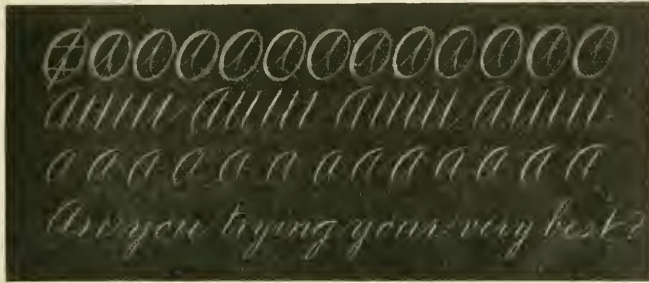 A A A A A A A A A A A A A
Are you trying your very best?